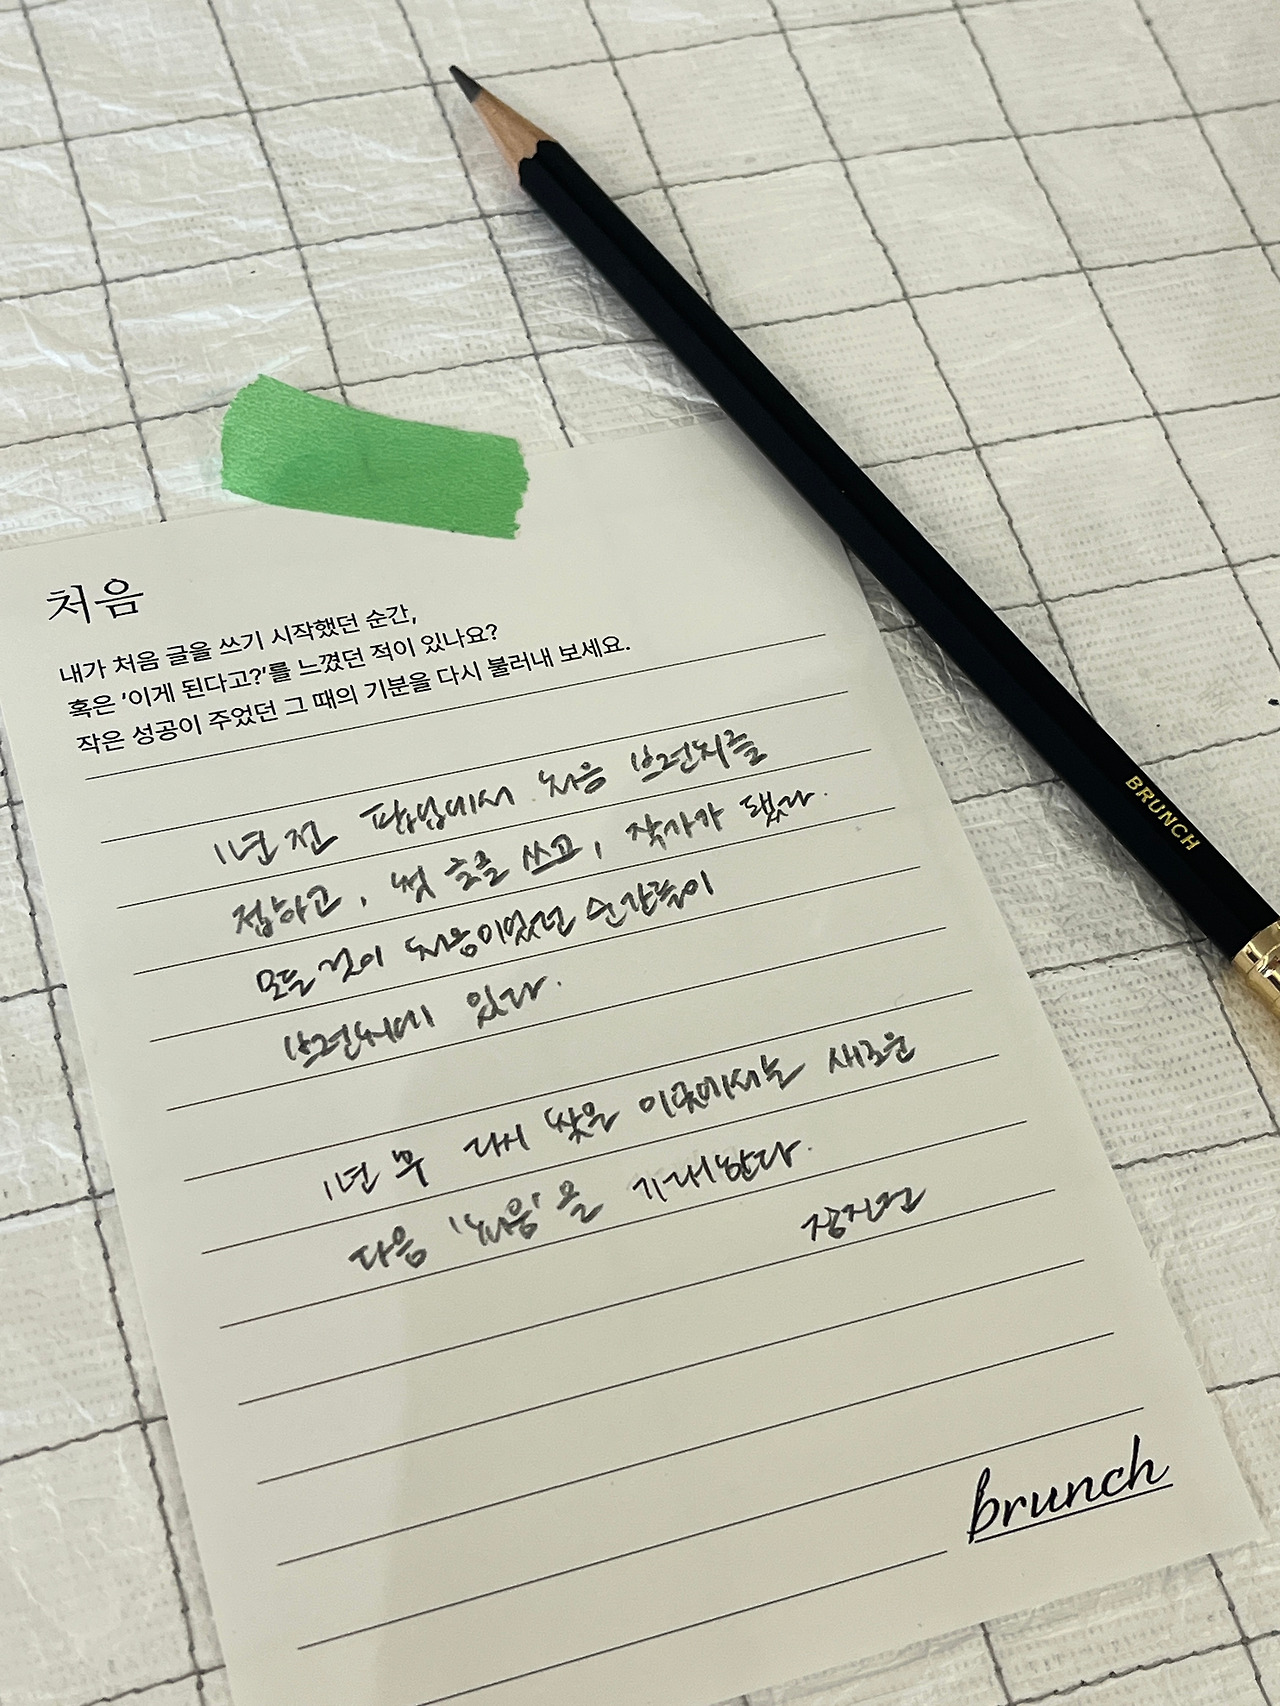 처음
내가 처음 글을 쓰기 시작했던 순간,
혹은 ‘이게 된다고?’를 느꼈던 적이 있나요?
작은 성공이 주었던 그 때의 기분을 다시 불러내 보세요.
1년 전 팝업에서 처음 브런치를
접하고, 첫 글을 쓰고, 작가가 됐다.
모든 것이 처음이었던 순간들이
브런치에 있다.
1년 후 다시 찾은 이곳에서는 새로운
다음 '처음'을 기대한다.
brunch
BRUNCH